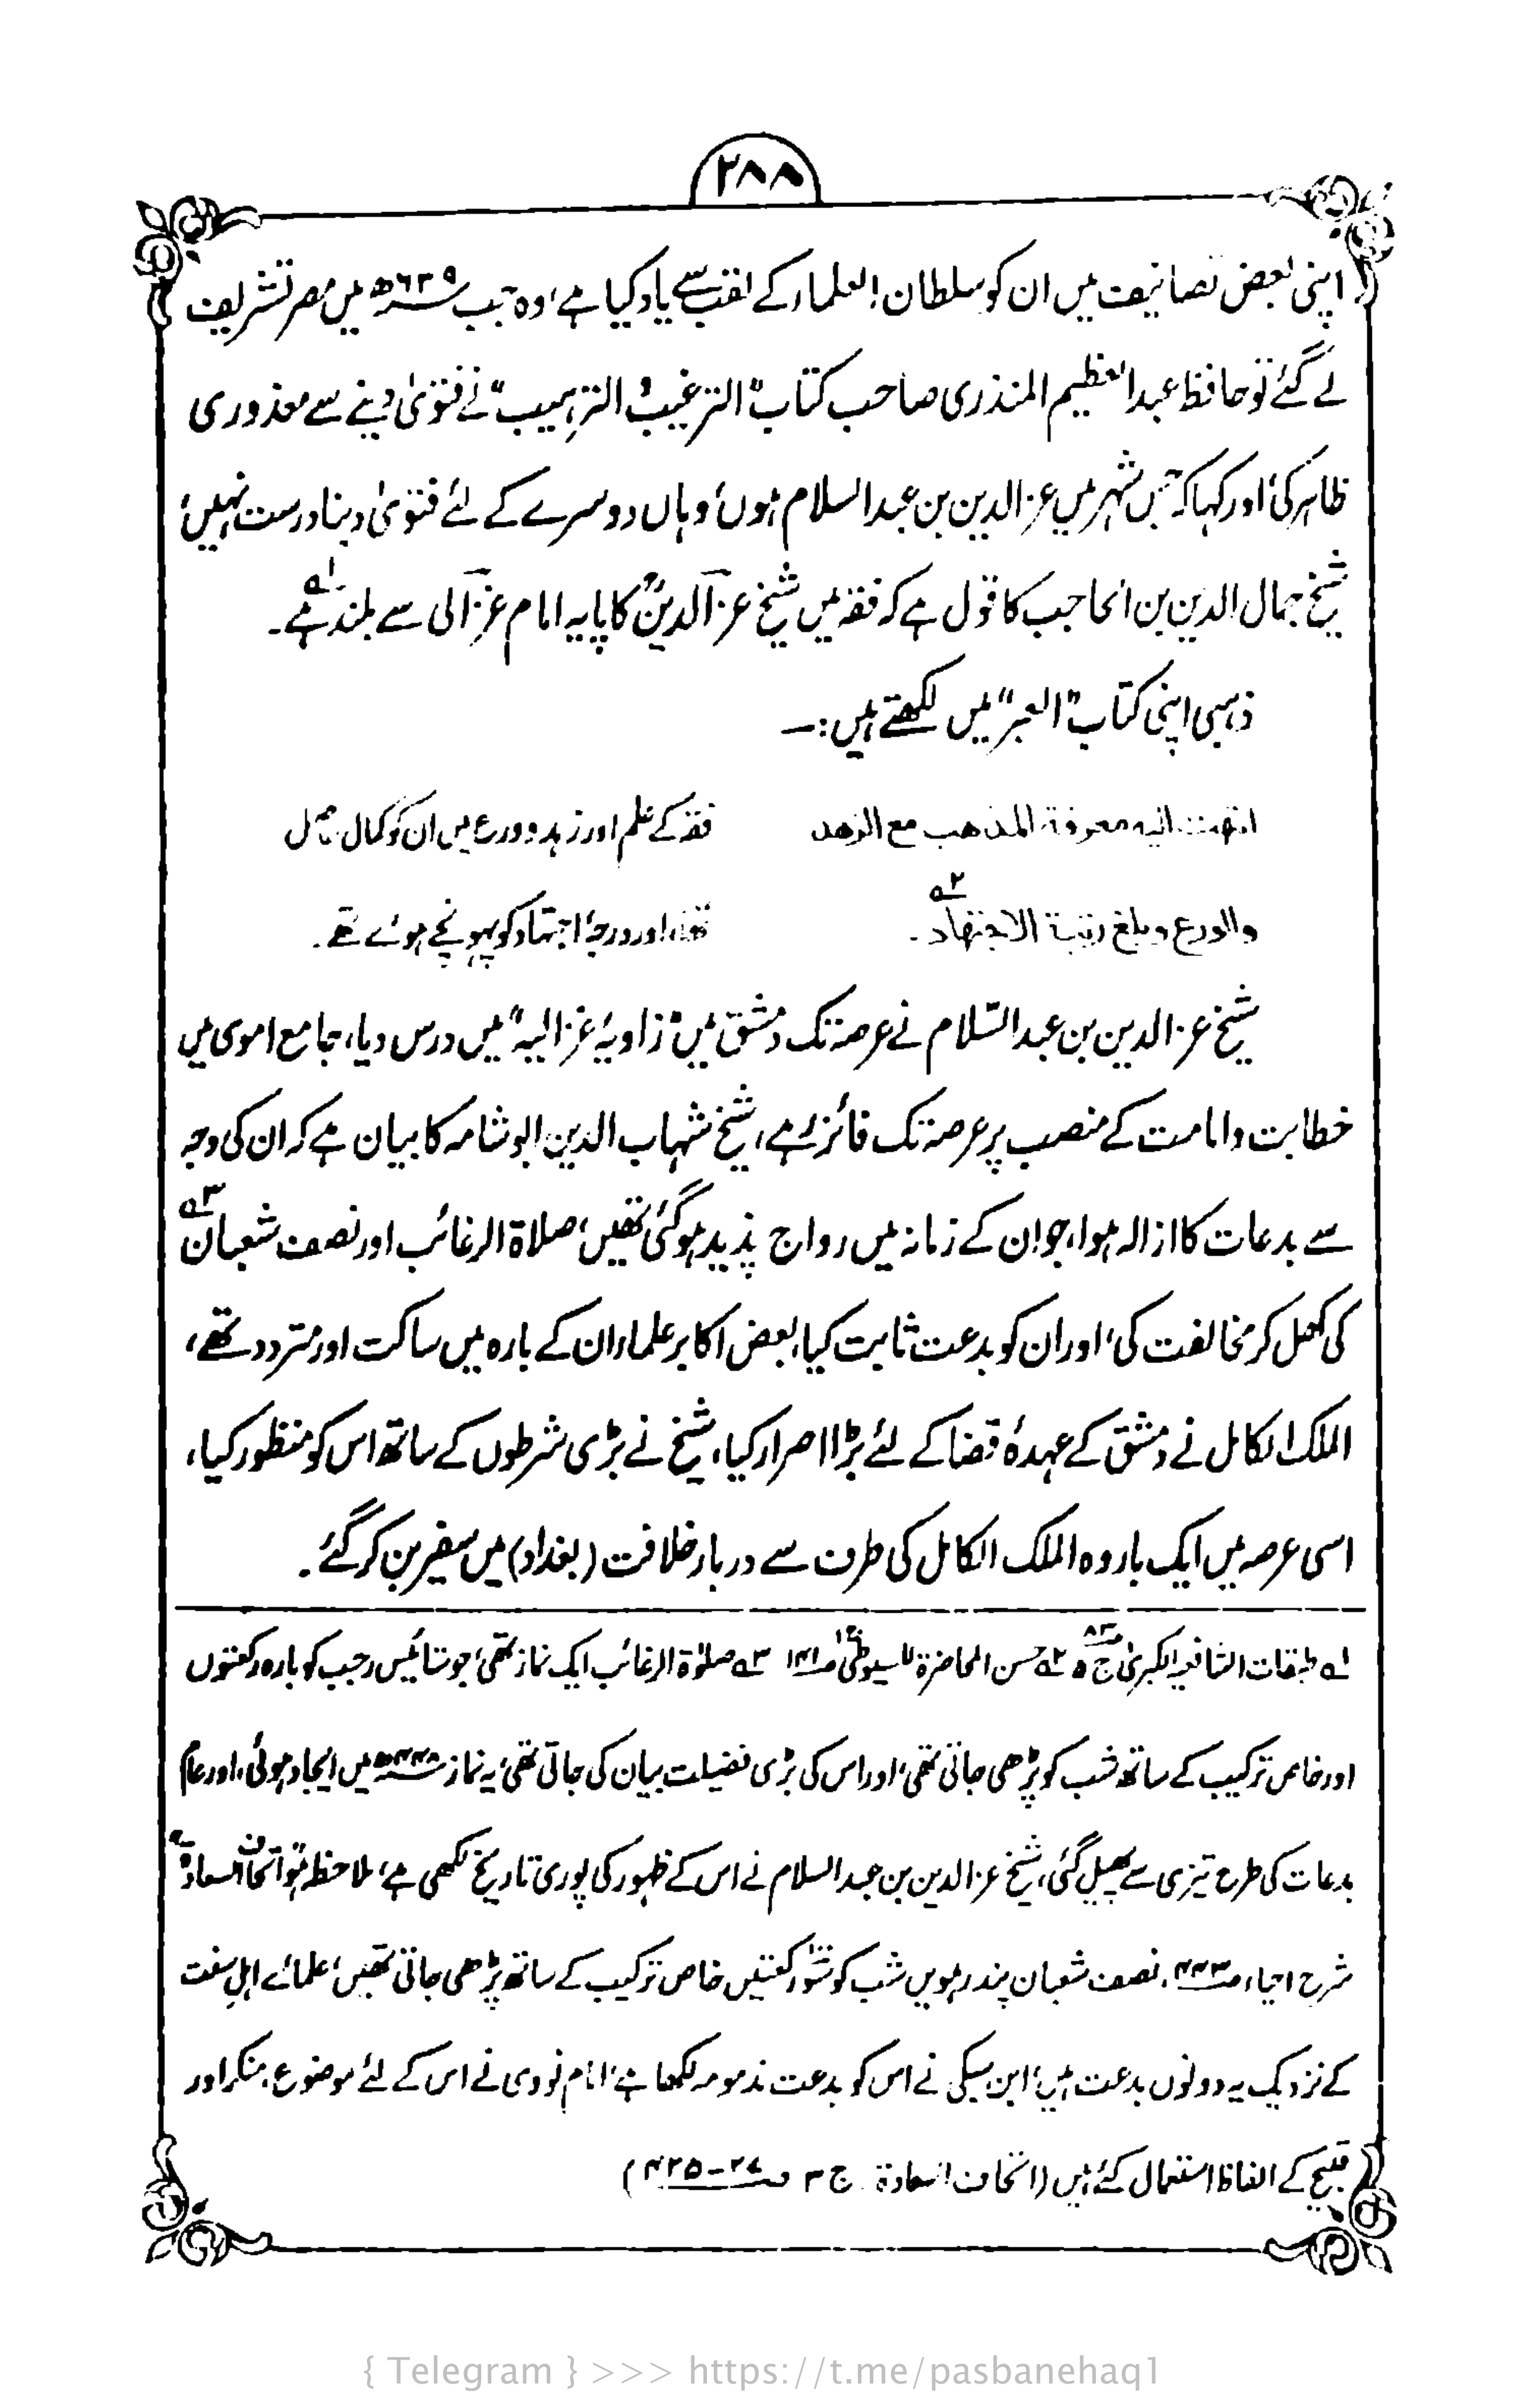 ۲۸۸
اپنی بعض تصانیف میں ان کو سلطان العلماء کے لقب سے یاد کیا ہے، وہ جب ۶۳۹ھ میں مصر تشریف
لے گئے تو حافظ عبدالعظیم المنذری صاحب کتاب "الترغیب والترہیب" نے فتویٰ دینے سے معذوری
ظاہر کی، اور کہا کہ جس شہر میں عزالدین بن عبدالسلام ہوں، وہاں دوسرے کے لئے فتویٰ دینا درست نہیں،
شیخ جمال الدین بن الحاجب کا قول ہے کہ فقہ میں شیخ عزالدینؒ کا پایہ امام غزالی سے بلند ہے۔ ۱ه
ذہبی اپنی کتاب "العبر" میں لکھتے ہیں:—
انتهت اليه معرفة المذهب مع الزهد
والورع وبلغ رتبة الاجتهاد۔ ۲ه
فقہ کے علم اور زہد و ورع میں ان کو کمال حاصل
تھا، اور درجۂ اجتہاد کو پہونچے ہوئے تھے۔
شیخ عزالدین بن عبدالسّلام نے عرصہ تک دمشق میں "زاویۂ غزالیہ" میں درس دیا، جامع اموی میں
خطابت و امامت کے منصب پر عرصہ تک فائز رہے، شیخ شہاب الدین ابو شامہ کا بیان ہے کہ ان کی وجہ
سے بدعات کا ازالہ ہوا، جو ان کے زمانہ میں رواج پذیر ہوگئی تھیں، صلاۃ الرغائب اور نصف شعبان ۳ه
کی کھل کر مخالفت کی، اور ان کو بدعت ثابت کیا، بعض اکابر علماء ان کے بارہ میں ساکت اور متردد تھے،
الملک الکامل نے دمشق کے عہدۂ قضا کے لئے بڑا اصرار کیا، شیخ نے بڑی شرطوں کے ساتھ اس کو منظور کیا،
اسی عرصہ میں ایک بار وہ الملک الکامل کی طرف سے دربار خلافت (بغداد) میں سفیر بن کر گئے۔
۱ه طبقات الشافعیہ الکبریٰ ج ۵ ۲ه حسن المحاضرۃ للسیوطی ج۱ ۳ه صلوٰۃ الرغائب ایک نماز تھی، جو ستائیس رجب کو بارہ رکعتوں
اور خاص ترکیب کے ساتھ شب کو پڑھی جاتی تھی، اور اس کی بڑی فضیلت بیان کی جاتی تھی، یہ نماز ۴۴۸ھ میں ایجاد ہوئی، اور عام
بدعات کی طرح تیزی سے پھیل گئی، شیخ عزالدین بن عبدالسلام نے اس کے ظہور کی پوری تاریخ لکھی ہے، ملاحظہ ہو "اتحاف السعادۃ"
شرح احیاء ص۴۲۳، نصف شعبان پندرہویں شب کو سَو رکعتیں خاص ترکیب کے ساتھ پڑھی جاتی تھیں، علمائے اہلِ سنت
کے نزدیک یہ دونوں بدعت ہیں، ابن سبکی نے اس کو بدعت مذمومہ لکھا ہے، امام نووی نے اس کے لئے موضوع، منکر اور
قبیح کے الفاظ استعمال کئے ہیں (اتحاف السعادۃ ج ۳ ص ۲۷-۴۲۵)
{ Telegram } >>> https://t.me/pasbanehaq1